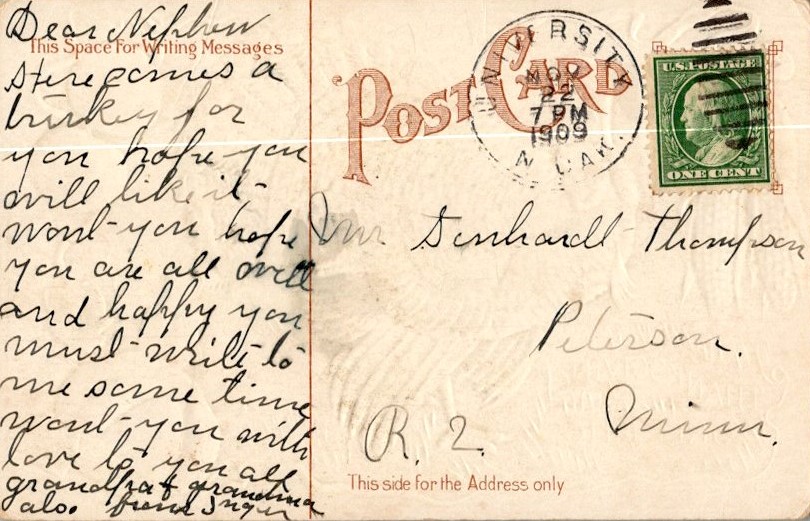 Dear Nephew
This Space For Writing Messages
Here comes a
turkey for
you hope you
will like it
wont you hope
you are all well
and happy you
must write to
me some time
wont you with
love to you all
grandpa & grandma
also. from
POST CARD
UNIVERSITY
NOV
22
7 PM
1909
N. DAK.
U.S. POSTAGE
ONE CENT
Mr Lenhardt Thompson
Peterson.
Minn.
R. 2.
This side for the Address only